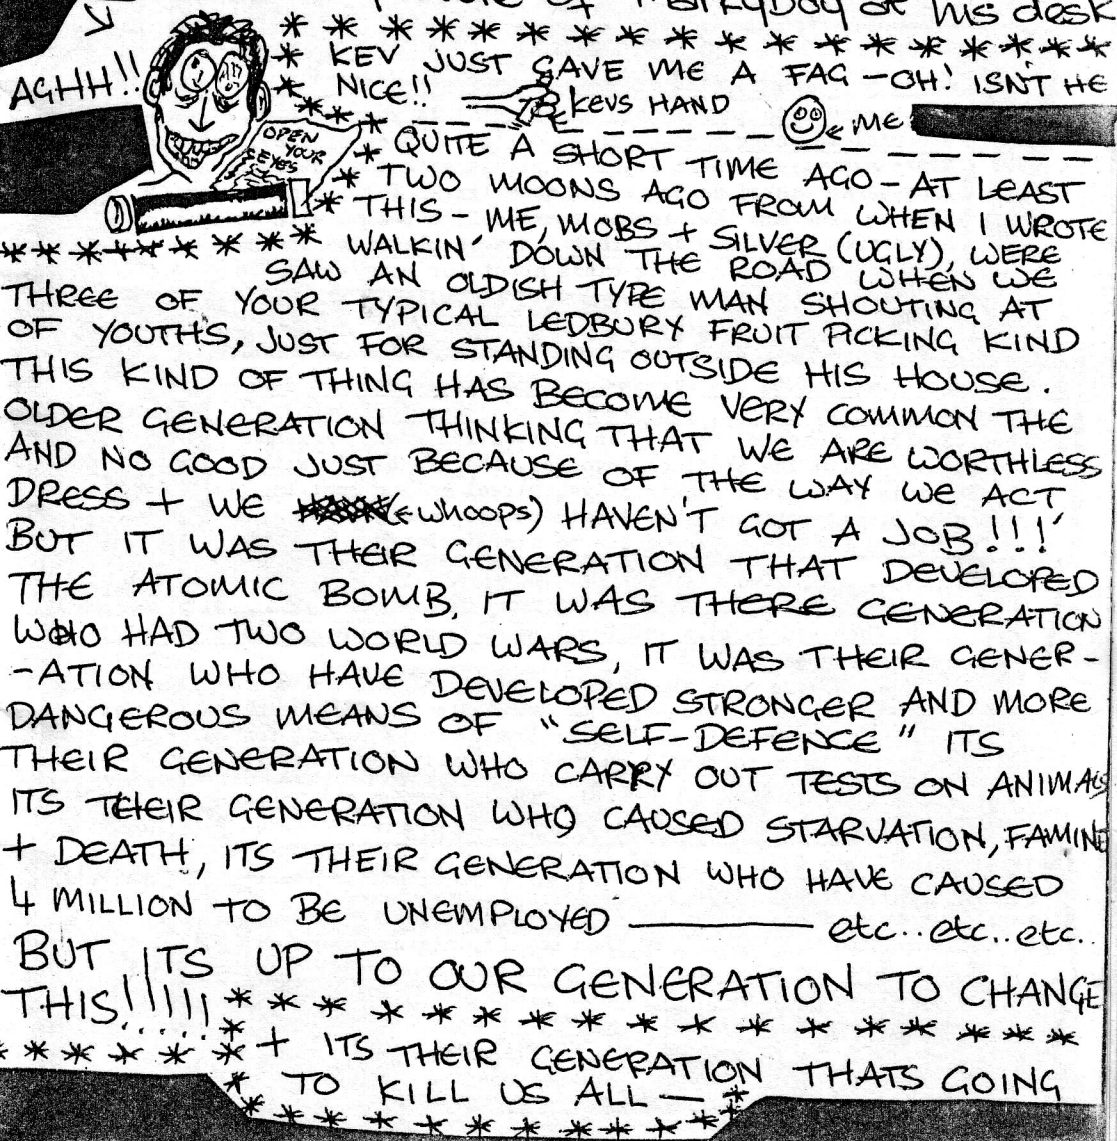 OF MARKYBOY at his desk
AGHH!!
KEV JUST GAVE ME A FAG - OH! ISN'T HE
NICE!!
KEVS HAND
ME
OPEN
YOUR
EYES
QUITE A SHORT TIME AGO - AT LEAST
TWO MOONS AGO FROM WHEN I WROTE
THIS - ME, MOBS + SILVER (UGLY), WERE
WALKIN' DOWN THE ROAD WHEN WE
SAW AN OLDISH TYPE MAN SHOUTING AT
THREE OF YOUR TYPICAL LEDBURY FRUIT PICKING KIND
OF YOUTHS, JUST FOR STANDING OUTSIDE HIS HOUSE.
THIS KIND OF THING HAS BECOME VERY COMMON THE
OLDER GENERATION THINKING THAT WE ARE WORTHLESS
AND NO GOOD JUST BECAUSE OF THE WAY WE ACT,
DRESS + WE (← whoops) HAVEN'T GOT A JOB!!!
BUT IT WAS THEIR GENERATION THAT DEVELOPED
THE ATOMIC BOMB, IT WAS THERE GENERATION
WHO HAD TWO WORLD WARS, IT WAS THEIR GENER-
-ATION WHO HAVE DEVELOPED STRONGER AND MORE
DANGEROUS MEANS OF "SELF-DEFENCE" ITS
THEIR GENERATION WHO CARRY OUT TESTS ON ANIMALS
ITS THEIR GENERATION WHO CAUSED STARVATION, FAMINE
+ DEATH, ITS THEIR GENERATION WHO HAVE CAUSED
4 MILLION TO BE UNEMPLOYED ——— etc..etc..etc..
BUT ITS UP TO OUR GENERATION TO CHANGE
THIS!!!!!
+ ITS THEIR GENERATION THATS GOING
TO KILL US ALL —